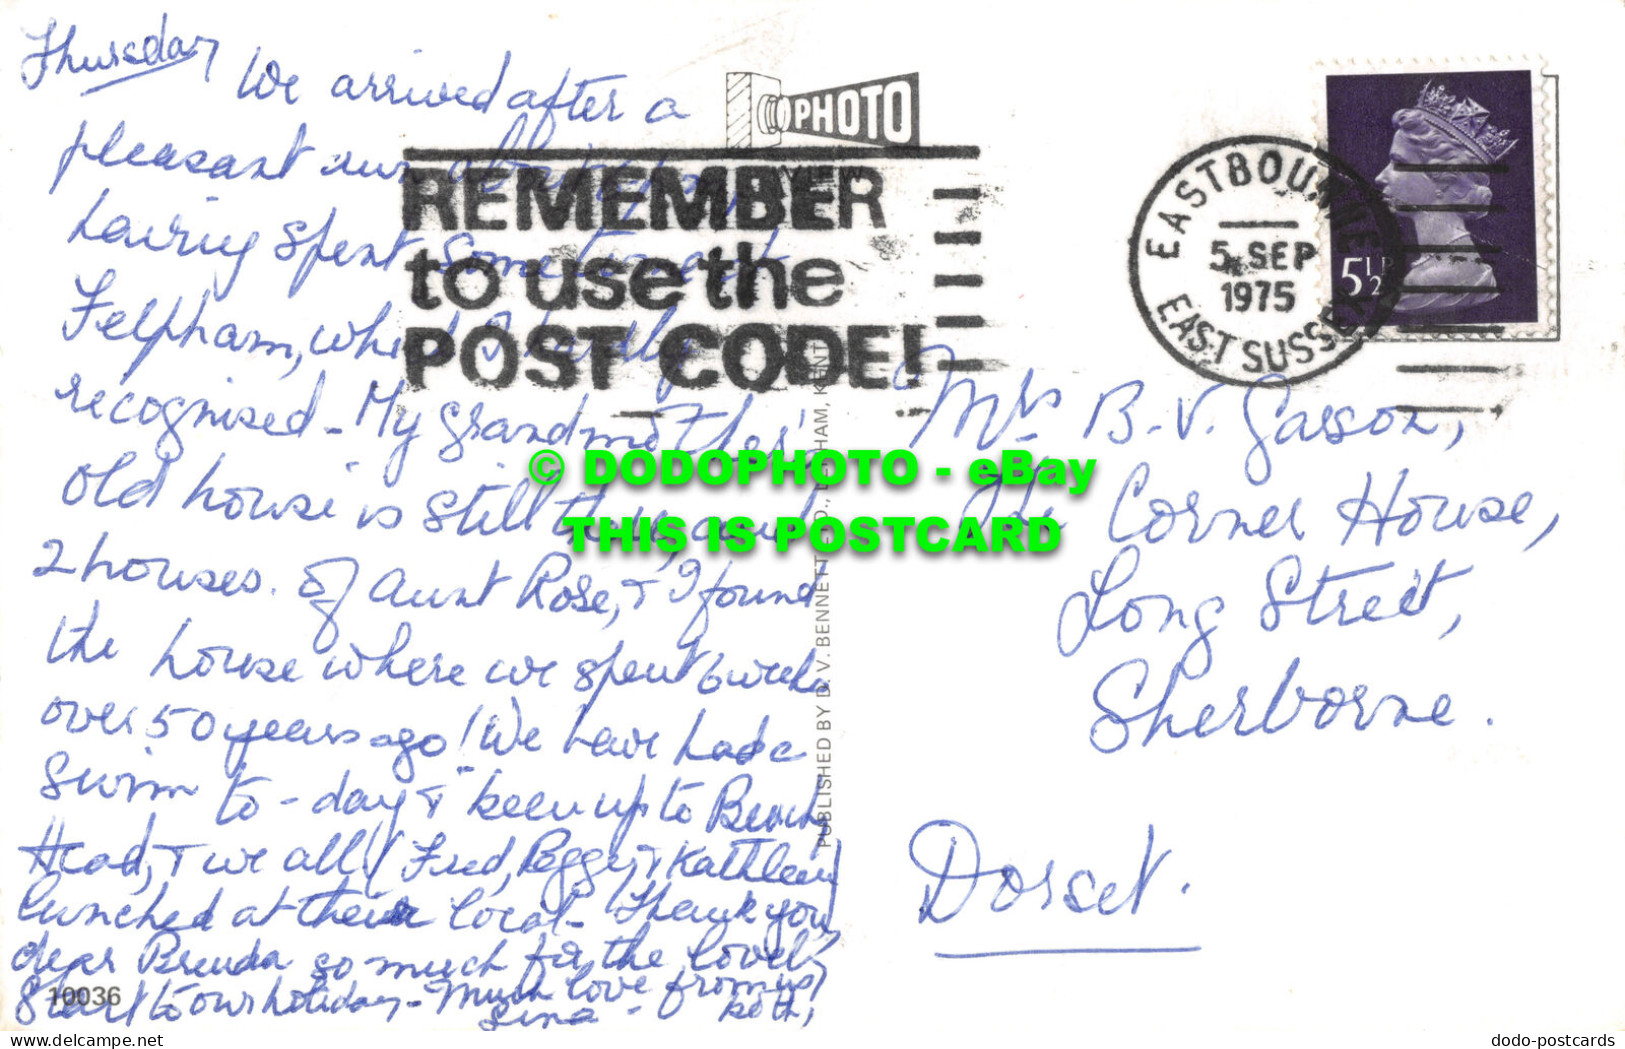 Thursday
We arrived after a
pleasant run
having spent sometime at
Felpham, which I hardly
recognised - My grandmother's
old house is still there, and
2 houses. of Aunt Rose, & I found
the house where we spent 6 weeks
over 50 years ago! We have had a
swim to-day & been up to Beachy
Head, & we all (Fred, Peggy, & Kathleen)
lunched at their local - Thank you
dear Brenda so much for the lovely
start to our holiday - Much love from us
both,
Lina -
10036
PHOTO
VIEW
REMEMBER
to use the
POST CODE!
EASTBOURNE
5 SEP
1975
EAST SUSSEX
5½P
PUBLISHED BY D. V. BENNETT LTD., KENT
Mrs B. V. Sasson,
The Corner House,
Long Street,
Sherborne.
Dorset.
© DODOPHOTO - eBay
THIS IS POSTCARD
delcampe.net
dodo-postcards